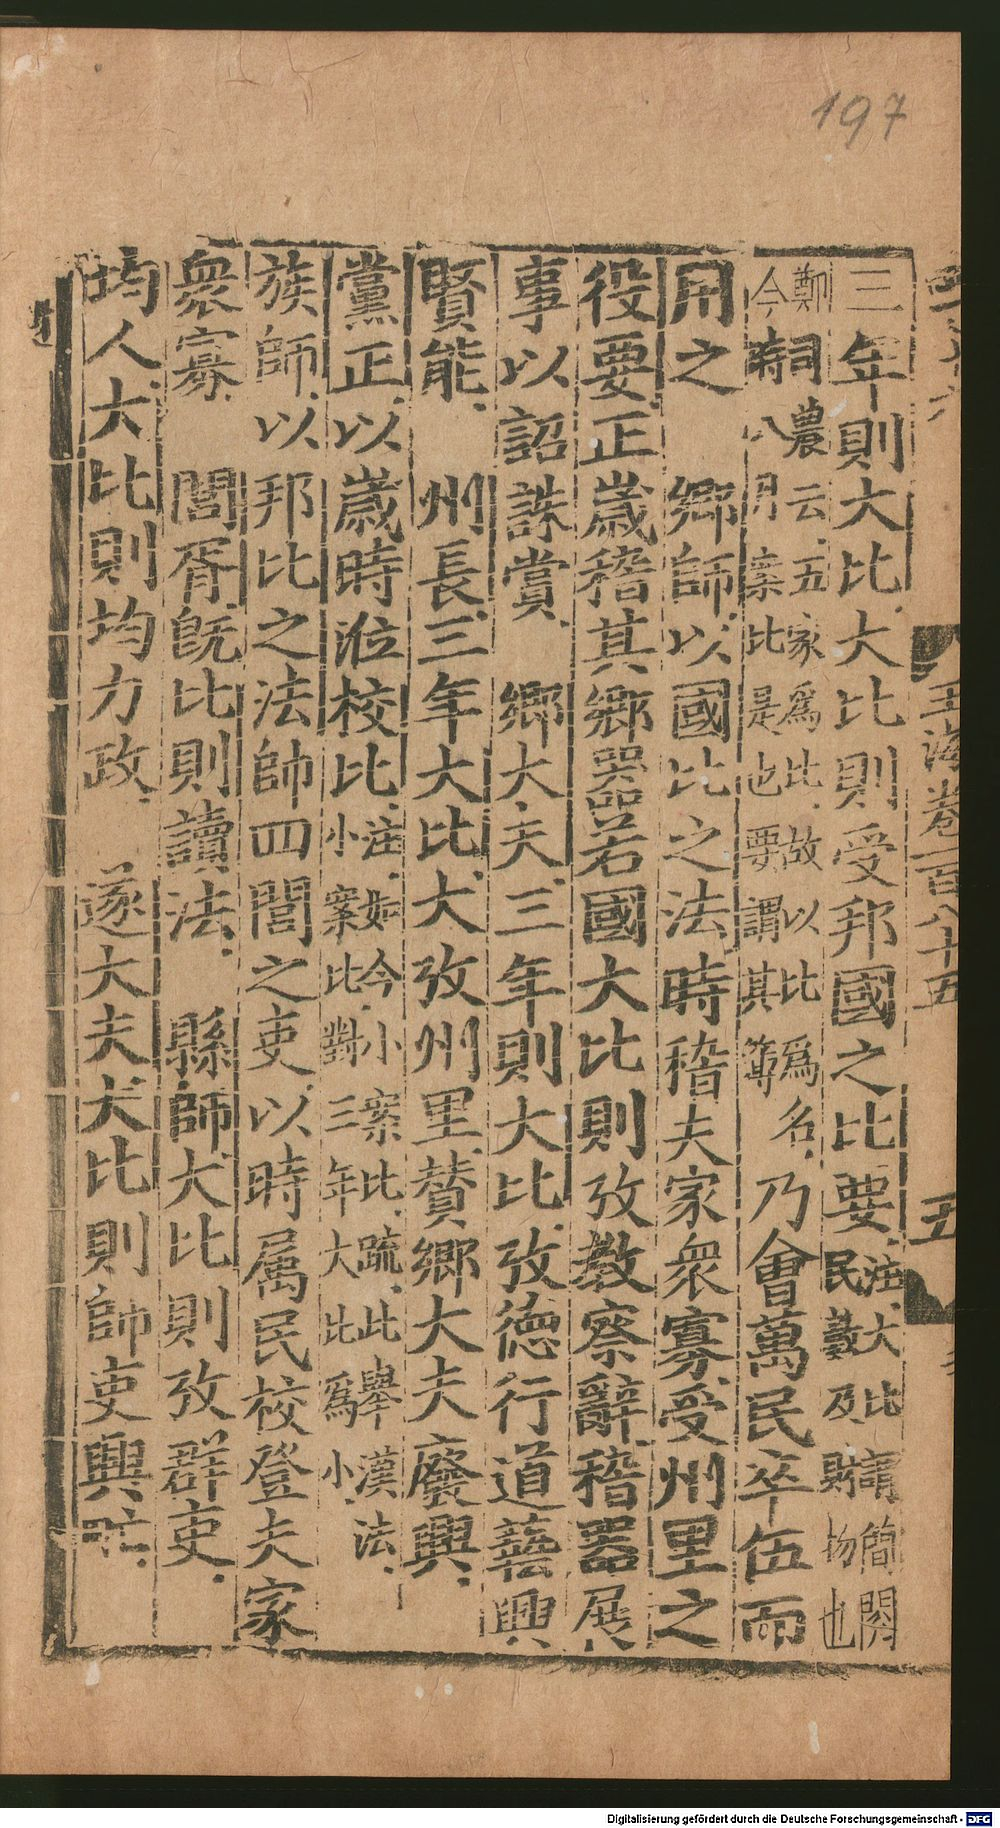 197
玉海卷一百八十五
五
三年則大比大比則受邦國之比要注大比謂簡閱民數及財物也
鄭司農云五家爲比故以比爲名今時八月案比是也要謂其簿乃會萬民卒伍而
用之　鄉師以國比之法時稽夫家衆寡受州里之
役要正歲稽其鄉器若國大比則攷教察辭稽器展
事以詔誅賞　鄉大夫三年則大比攷德行道藝興
賢能　州長三年大比大攷州里賛鄉大夫廢興
黨正以歲時涖校比注如今小案比疏此舉漢法小案比對三年大比爲小
族師以邦比之法帥四閭之吏以時属民校登夫家
衆寡　閭胥旣比則讀法　縣師大比則攷群吏
均人大比則均力政　遂大夫大比則帥吏興甿
Digitalisierung gefördert durch die Deutsche Forschungsgemeinschaft - DFG